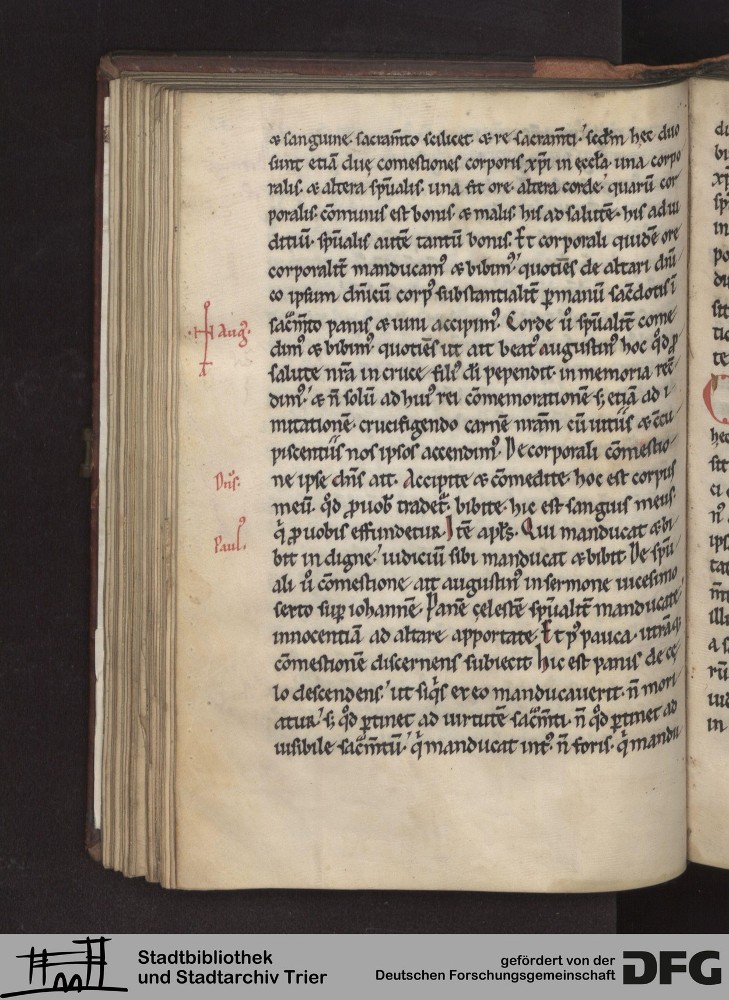 & sanguine. sacram̄to scilicet & re sacram̄ti. sc̄dm hec duo
sunt etiā due comestiones corporis xp̄i in eccl̄a. una corpo
ralis. & altera sp̄ualis. una fit ore. altera corde. quarū cor
poralis. cōmunis est bonis & malis. his ad salutē. his ad iu
ditiū. sp̄ualis autē tantū bonis. Et corporali quidē ore
corporalit̄ manducamꝰ & bibimꝰ. quotiēs de altari dn̄i
co ipsum dn̄icū corpꝰ substantialit̄ ꝑ manū sac̄dotis ī
sac̄m̄to panis & uini accipimꝰ. Corde ū sp̄ualit̄ come
dimꝰ & bibimꝰ. quotiēs ut ait beatꝰ augustinꝰ hoc qd̄ ꝓ
salute nr̄a in cruce filiꝰ dī pependit. in memoria reti
dimꝰ. & n̄ solū ad huiꝰ rei cōmemorationē s; etiā ad i
mitationē. crucifigendo carnē nr̄am cū uitiis & c̄cu
piscentiis nos ipsos accendimꝰ. De corporali cōmestio
ne ipse dn̄s ait. Accipite & cōmedite. hoc est corpus
meū. qd̄ ꝓ uob̄ tradet᷑. bibite. hic est sanguis meus.
q̇ ꝓ uobis effundetur. Itē apl̄s. Qui manducat & bi
bit in digne. iudiciū sibi manducat & bibit. De sp̄u
ali ū cōmestione ait augustinꝰ in sermone uicesimo
sexto sup̄ iohannē. Panē celestē sp̄ualit̄ manducate.
innocentiā ad altare apportate. Et pꝰ pauca. utrāq;
cōmestionē discernens subiecit. hic est panis de ce
lo descendens. ut siq̇s ex eo manducauerit. n̄ mori
atur. s; qd̄ ꝑtinet ad uirtutē sac̄m̄ti. n̄ qd̄ ꝑtinet ad
uisibile sac̄m̄tū. q̇ manducat intꝰ. n̄ foris. q̇ mandu
Augꝰ.
Dn̄s.
Paulꝰ.
Stadtbibliothek
und Stadtarchiv Trier
gefördert von der
Deutschen Forschungsgemeinschaft
DFG